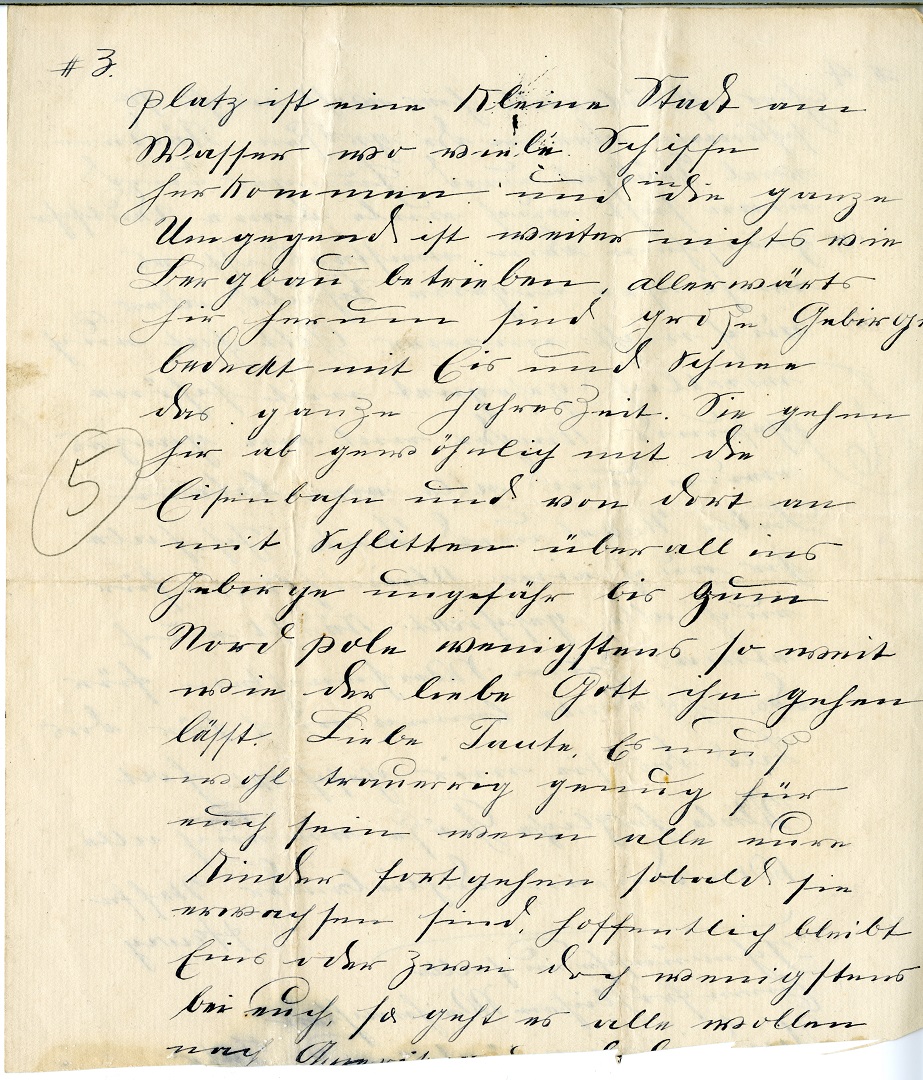 # 3.
Platz ist eine Kleine Stadt am
Wasser wo viele Schiffe
her Kommen und in die ganze
Umgegend ist weiter nichts wie
Bergbau betrieben, allerwärts
hir herum sind große Gebirge
bedeckt mit Eis und Schnee
das ganze Jahreszeit. Sie gehen
hir ab gewöhnlich mit die
5
Eisenbahn und von dort an
mit Schlitten überall ins
Gebirge ungefähr bis zum
Nord pole wenigstens so weit
wie der liebe Gott ihn gehen
lässt. Liebe Tante, Es muß
wohl trauerrig genug für
euch sein wenn alle eure
Kinder fortgehen sobald sie
erwachsen sind, hoffentlich bleibt
Eins oder zwei doch wenigstens
bei euch, so geht es alle wollen
nach